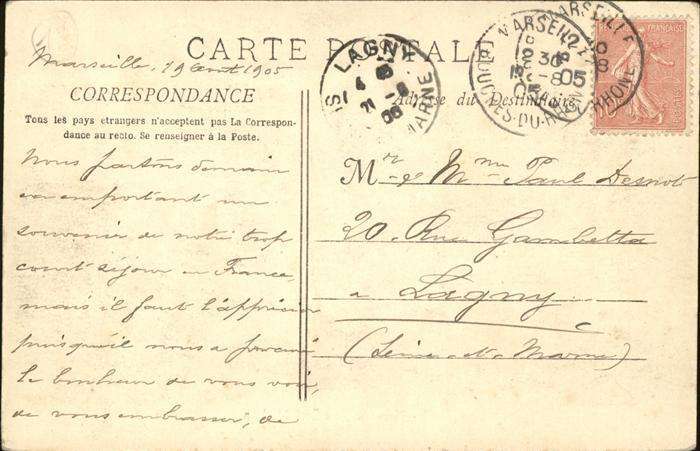 CARTE POSTALE
Marseille, 19 Août 1905
CORRESPONDANCE
Tous les pays etrangers n'acceptent pas La Correspon-
dance au recto. Se renseigner à la Poste.
Nous partons demain
en emportant un
souvenir de notre trop
court séjour en France,
mais il faut l'apprécier
puisqu'il nous a procuré
le bonheur de vous voir,
de vous embrasser, de
LAGNY
MARNE
MARSEILLE
BOUCHES-DU-RHONE
MARSEILLE
RHONE
FRANÇAISE
Adresse du Destinataire
Mr & Mme Paul Desnot
20, Rue Gambetta
à Lagny
(Seine-et-Marne)